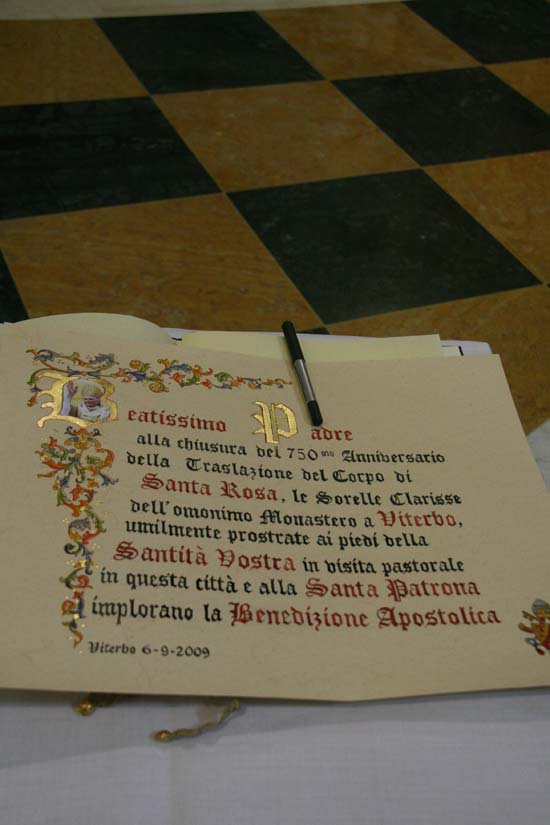 Beatissimo Padre
alla chiusura del 750mo Anniversario
della Traslazione del Corpo di
Santa Rosa, le Sorelle Clarisse
dell'omonimo Monastero a Viterbo,
umilmente prostrate ai piedi della
Santità Vostra in visita pastorale
in questa città e alla Santa Patrona
implorano la Benedizione Apostolica
Viterbo 6-9-2009